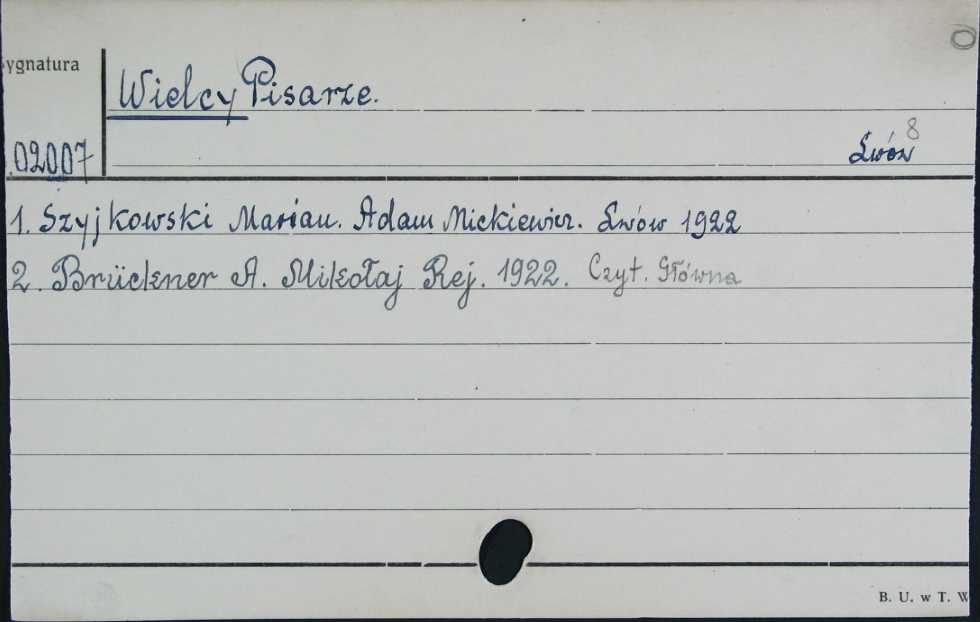 O
ygnatura
Wielcy Pisarze.
8
.02007
Lwów
1. Szyjkowski Marian. Adam Mickiewicz. Lwów 1922
2. Brückner A. Mikołaj Rej. 1922. Czyt. Główna
B. U. w T. W